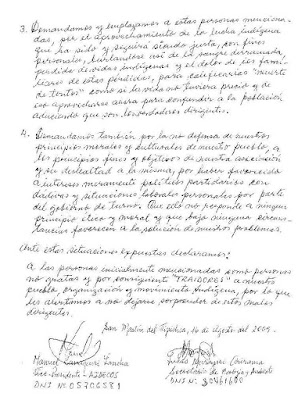 3. Demandamos y emplazamos a estas personas menciona-
das, por el aprovechamiento de la lucha indígena
que ha sido y seguirá siendo justa, con fines
personales, burlándose así de la sangre derramada,
pérdida de vidas indígenas y el dolor de los fami-
liares de estas pérdidas, para calificarlas "muerte
de tontos" como si la vida no tuviera precio y de
eso aprovecharse ahora para confundir a la población
aduciendo que son verdaderos dirigentes.
4. Demandamos también por la no defensa de nuestros
principios morales y culturales de nuestro pueblo, a
los principios fines y objetivos de nuestra asociación
y su deslealtad a la misma, por haber favorecido
a intereses meramente políticos partidarios con
dádivas y situaciones laborales personales por parte
del gobierno de turno. Que esto no responde a ningún
principio ético y moral y que bajo ninguna circuns-
tancia favorecen a la solución de nuestros problemas.
Ante estas situaciones expuestas declaramos:
A las personas inicialmente mencionadas como personas
no gratas y por consiguiente "TRAIDORES" a nuestro
pueblo, organización y movimiento indígena, por lo que
les alertamos a no dejarse sorprender de estos malos
dirigentes.
San Martín del Tipishca, 16 de agosto del 2009.
Manuel
Vice-Presidente - AIDECOS
DNI Nº 05706531
Secretario de
DNI Nº